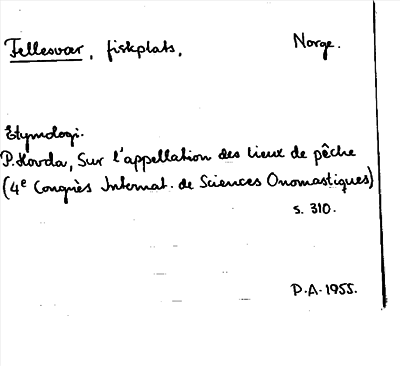 Fellesvær, fiskplats, Norge.
Etymologi.
P. Hovda, Sur l'appellation des lieux de pêche
(4e Congrès Internat. de Sciences Onomastiques)
s. 310.
P.A. 1955.